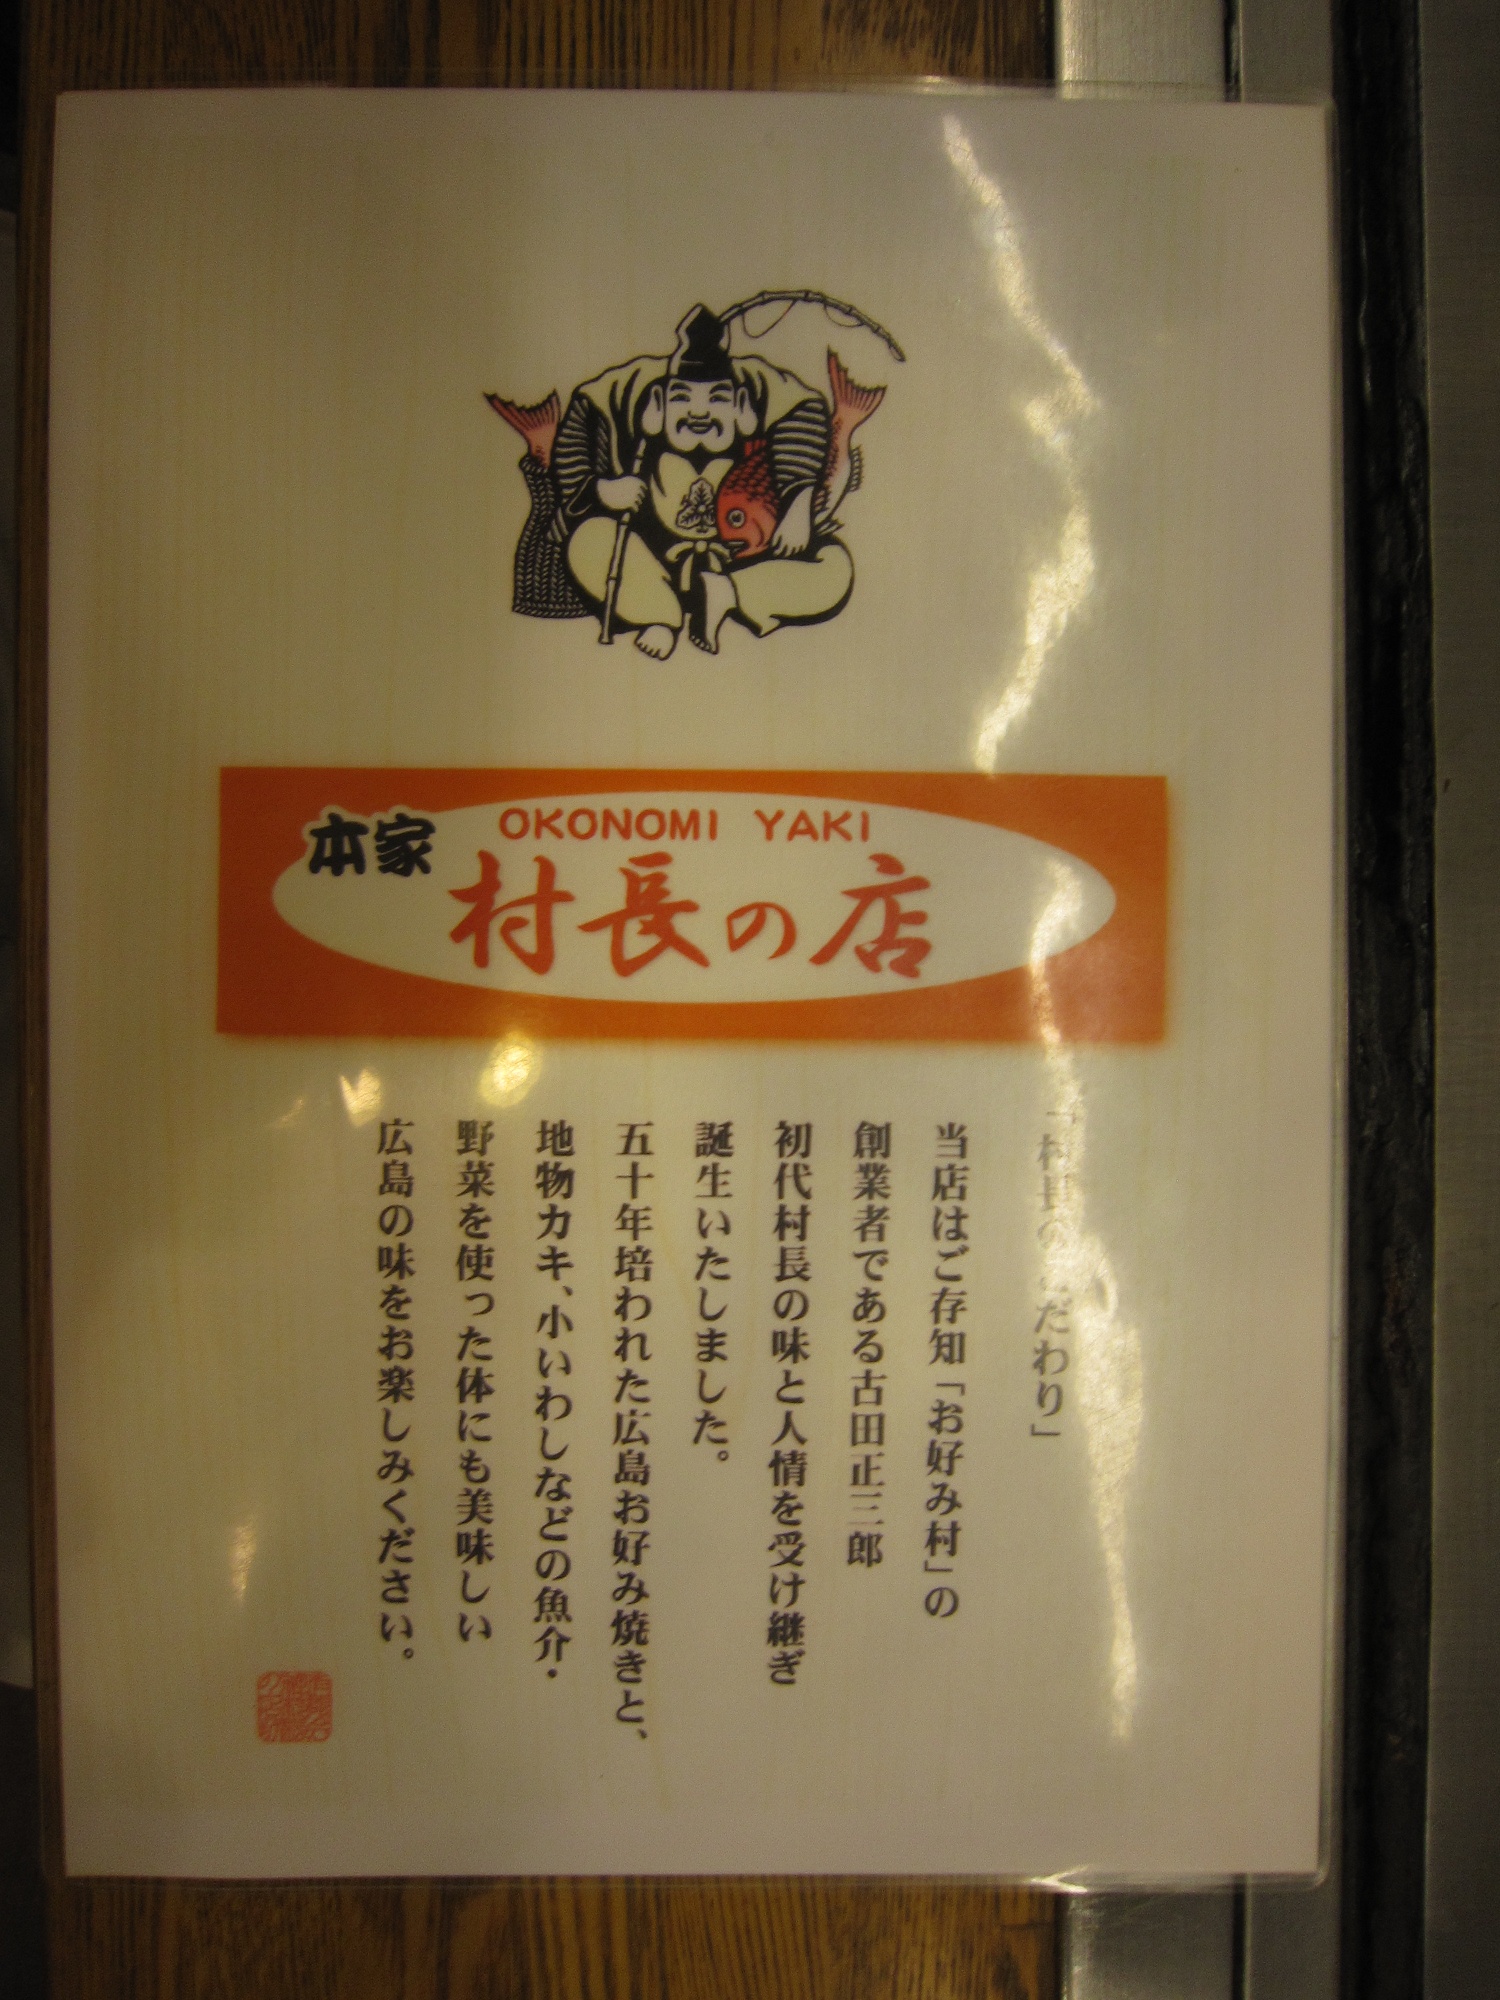 OKONOMI YAKI
本家
村長の店
「村長のこだわり」
当店はご存知「お好み村」の
創業者である古田正三郎
初代村長の味と人情を受け継ぎ
誕生いたしました。
五十年培われた広島お好み焼きと、
地物カキ、小いわしなどの魚介・
野菜を使った体にも美味しい
広島の味をお楽しみください。